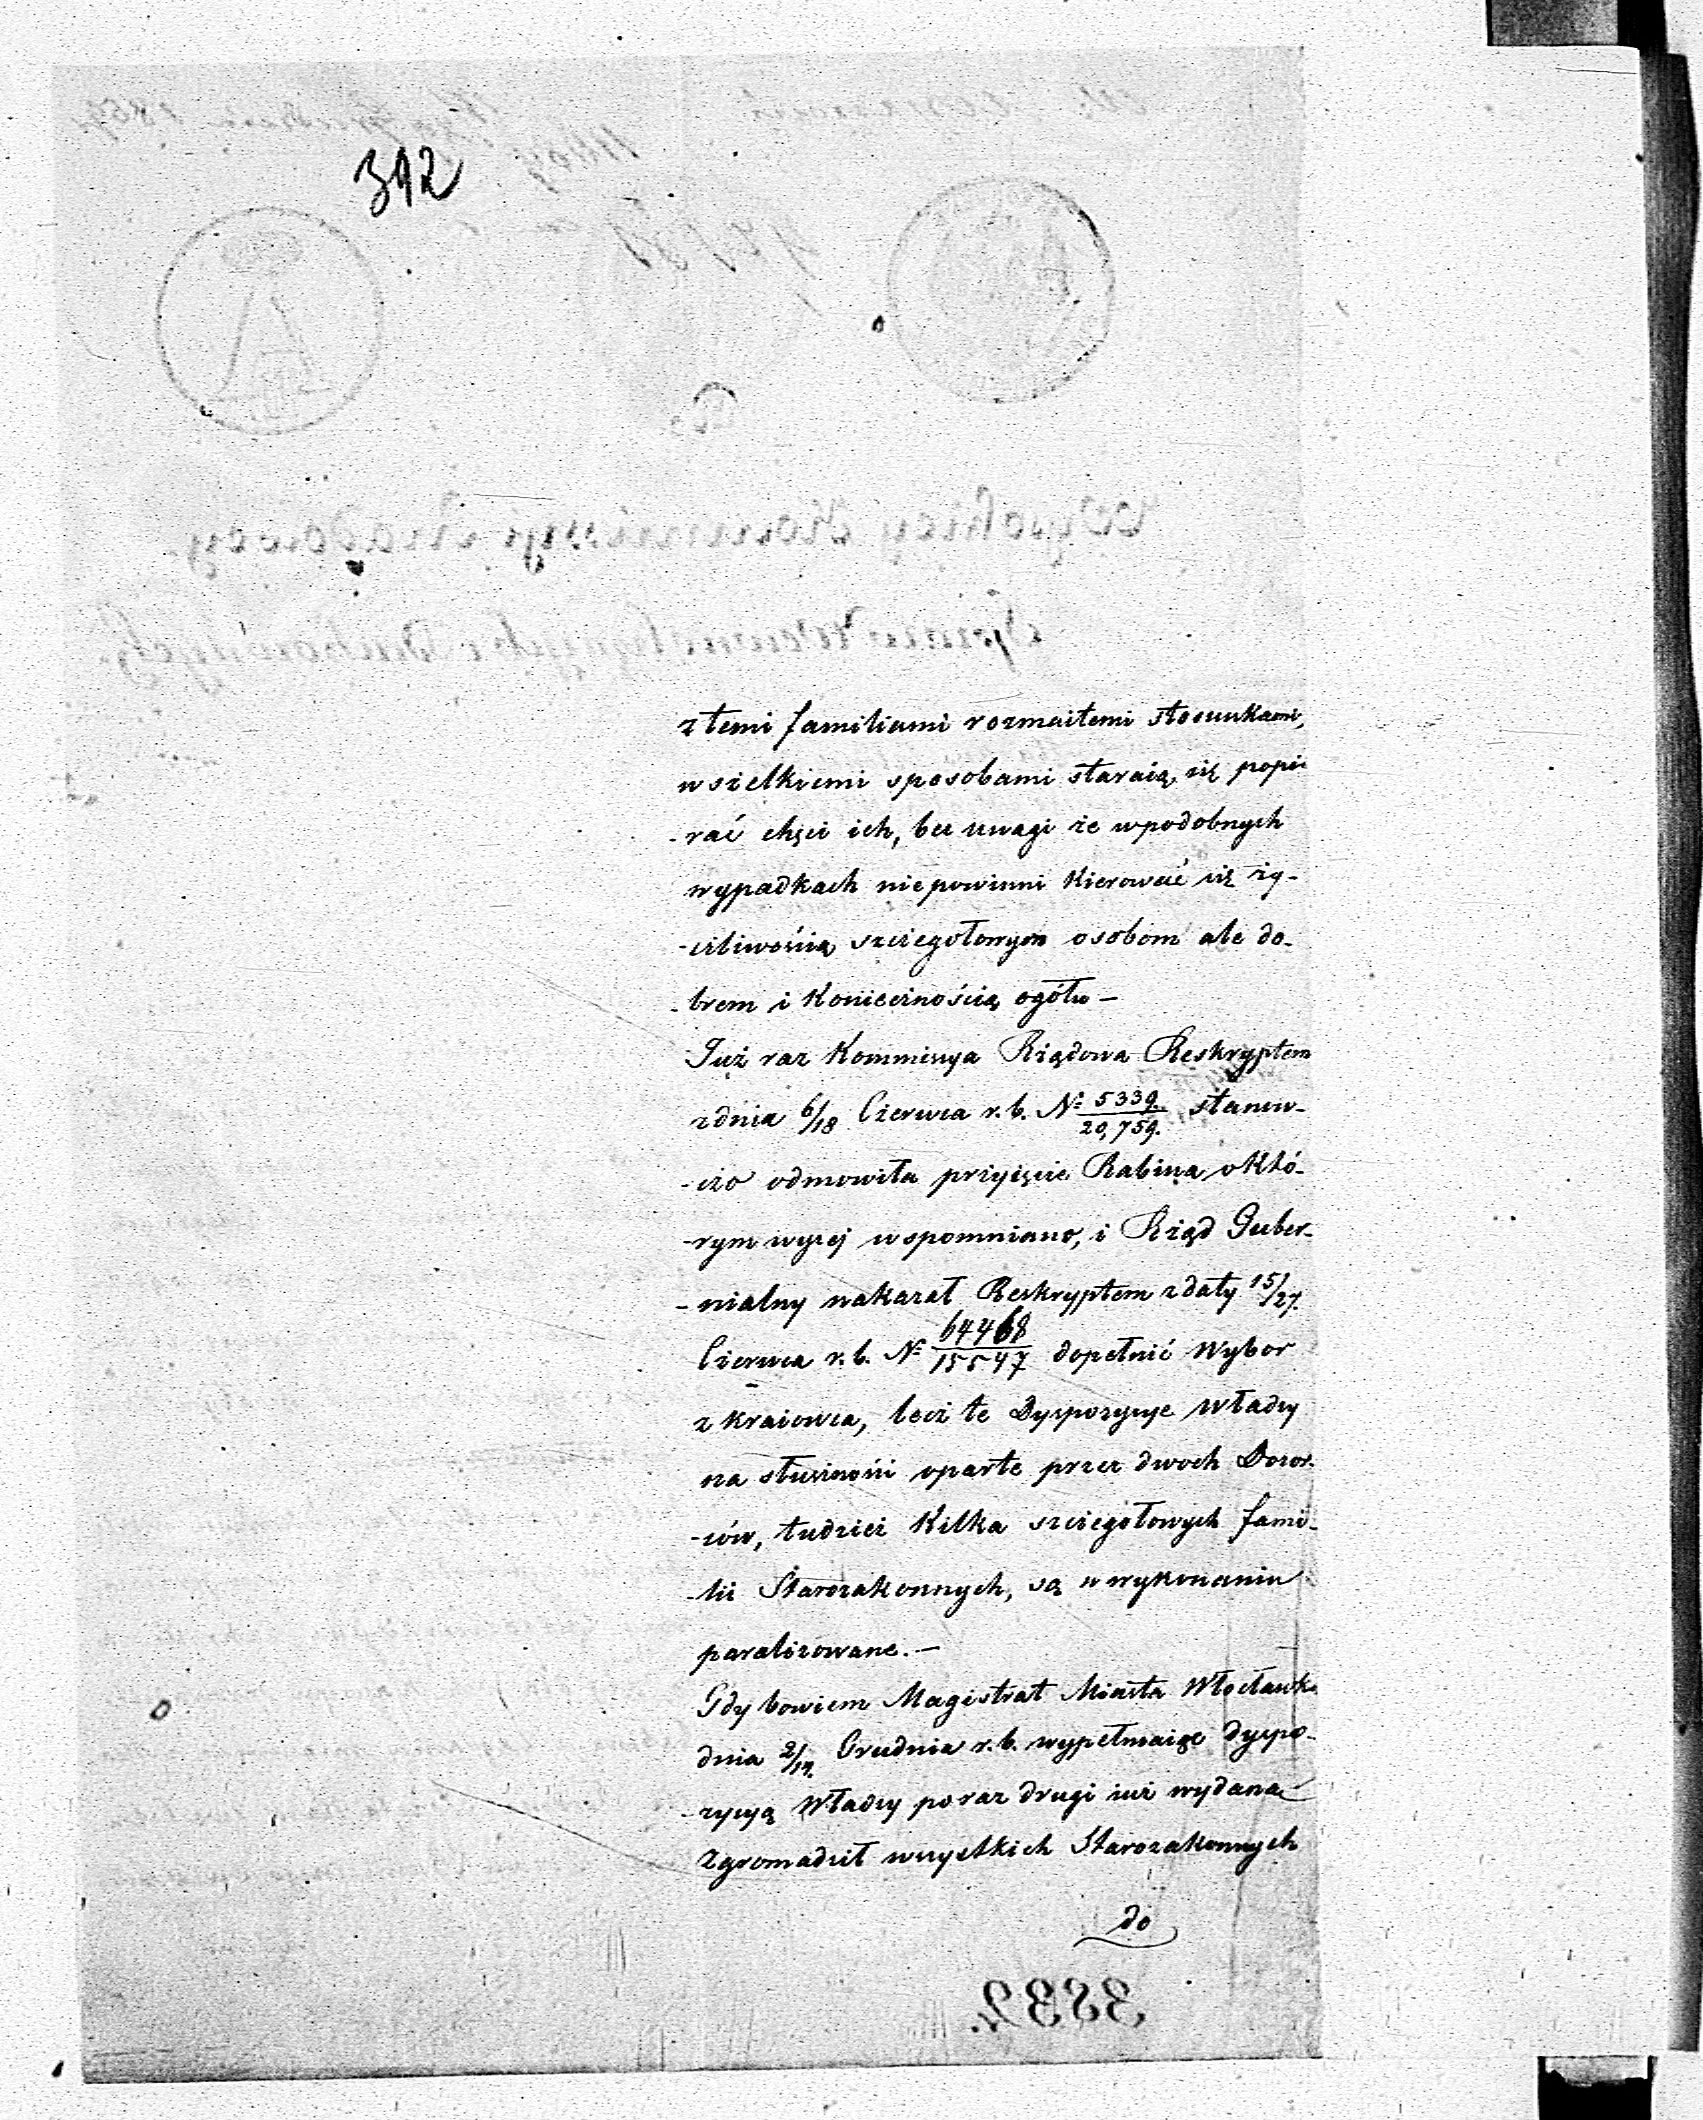 392
z temi familiami rozmaitemi stosunkami,
wszelkiemi sposobami staraią się popie
-rać chęci ich, bez uwagi że wpodobnych
wypadkach niepowinni kierować się ży-
-czliwością szczegołowym osobom ale do-
-brem i koniecznością ogółu –
Już raz Kommissya Rządowa Reskryptem
zdnia 6/18 Czerwca r. b. № 5339./20,759. stanow-
-czo odmowiła przyięcie Rabina, o któ-
-rym wyżej wspomniano, i Rząd Guber-
-nialny nakazał Reskryptem zdaty 15/27.
Czerwca r. b. № 64468/15547 dopełnić wybor
z kraiowca, lecz te Dyspozycye Władzy
na słuszności oparte przez dwoch Dozor-
-ców, tudzież kilka szczegołowych fami-
-lii Starozakonnych, są w wykonaniu
paraliżowane. –
Gdy bowiem Magistrat Miasta Włocławka
dnia 2/14. Grudnia r. b. wypełniaiąc dyspo-
-zycyą Władzy poraz drugi iuż wydaną
zgromadził wszystkich Starozakonnych
do